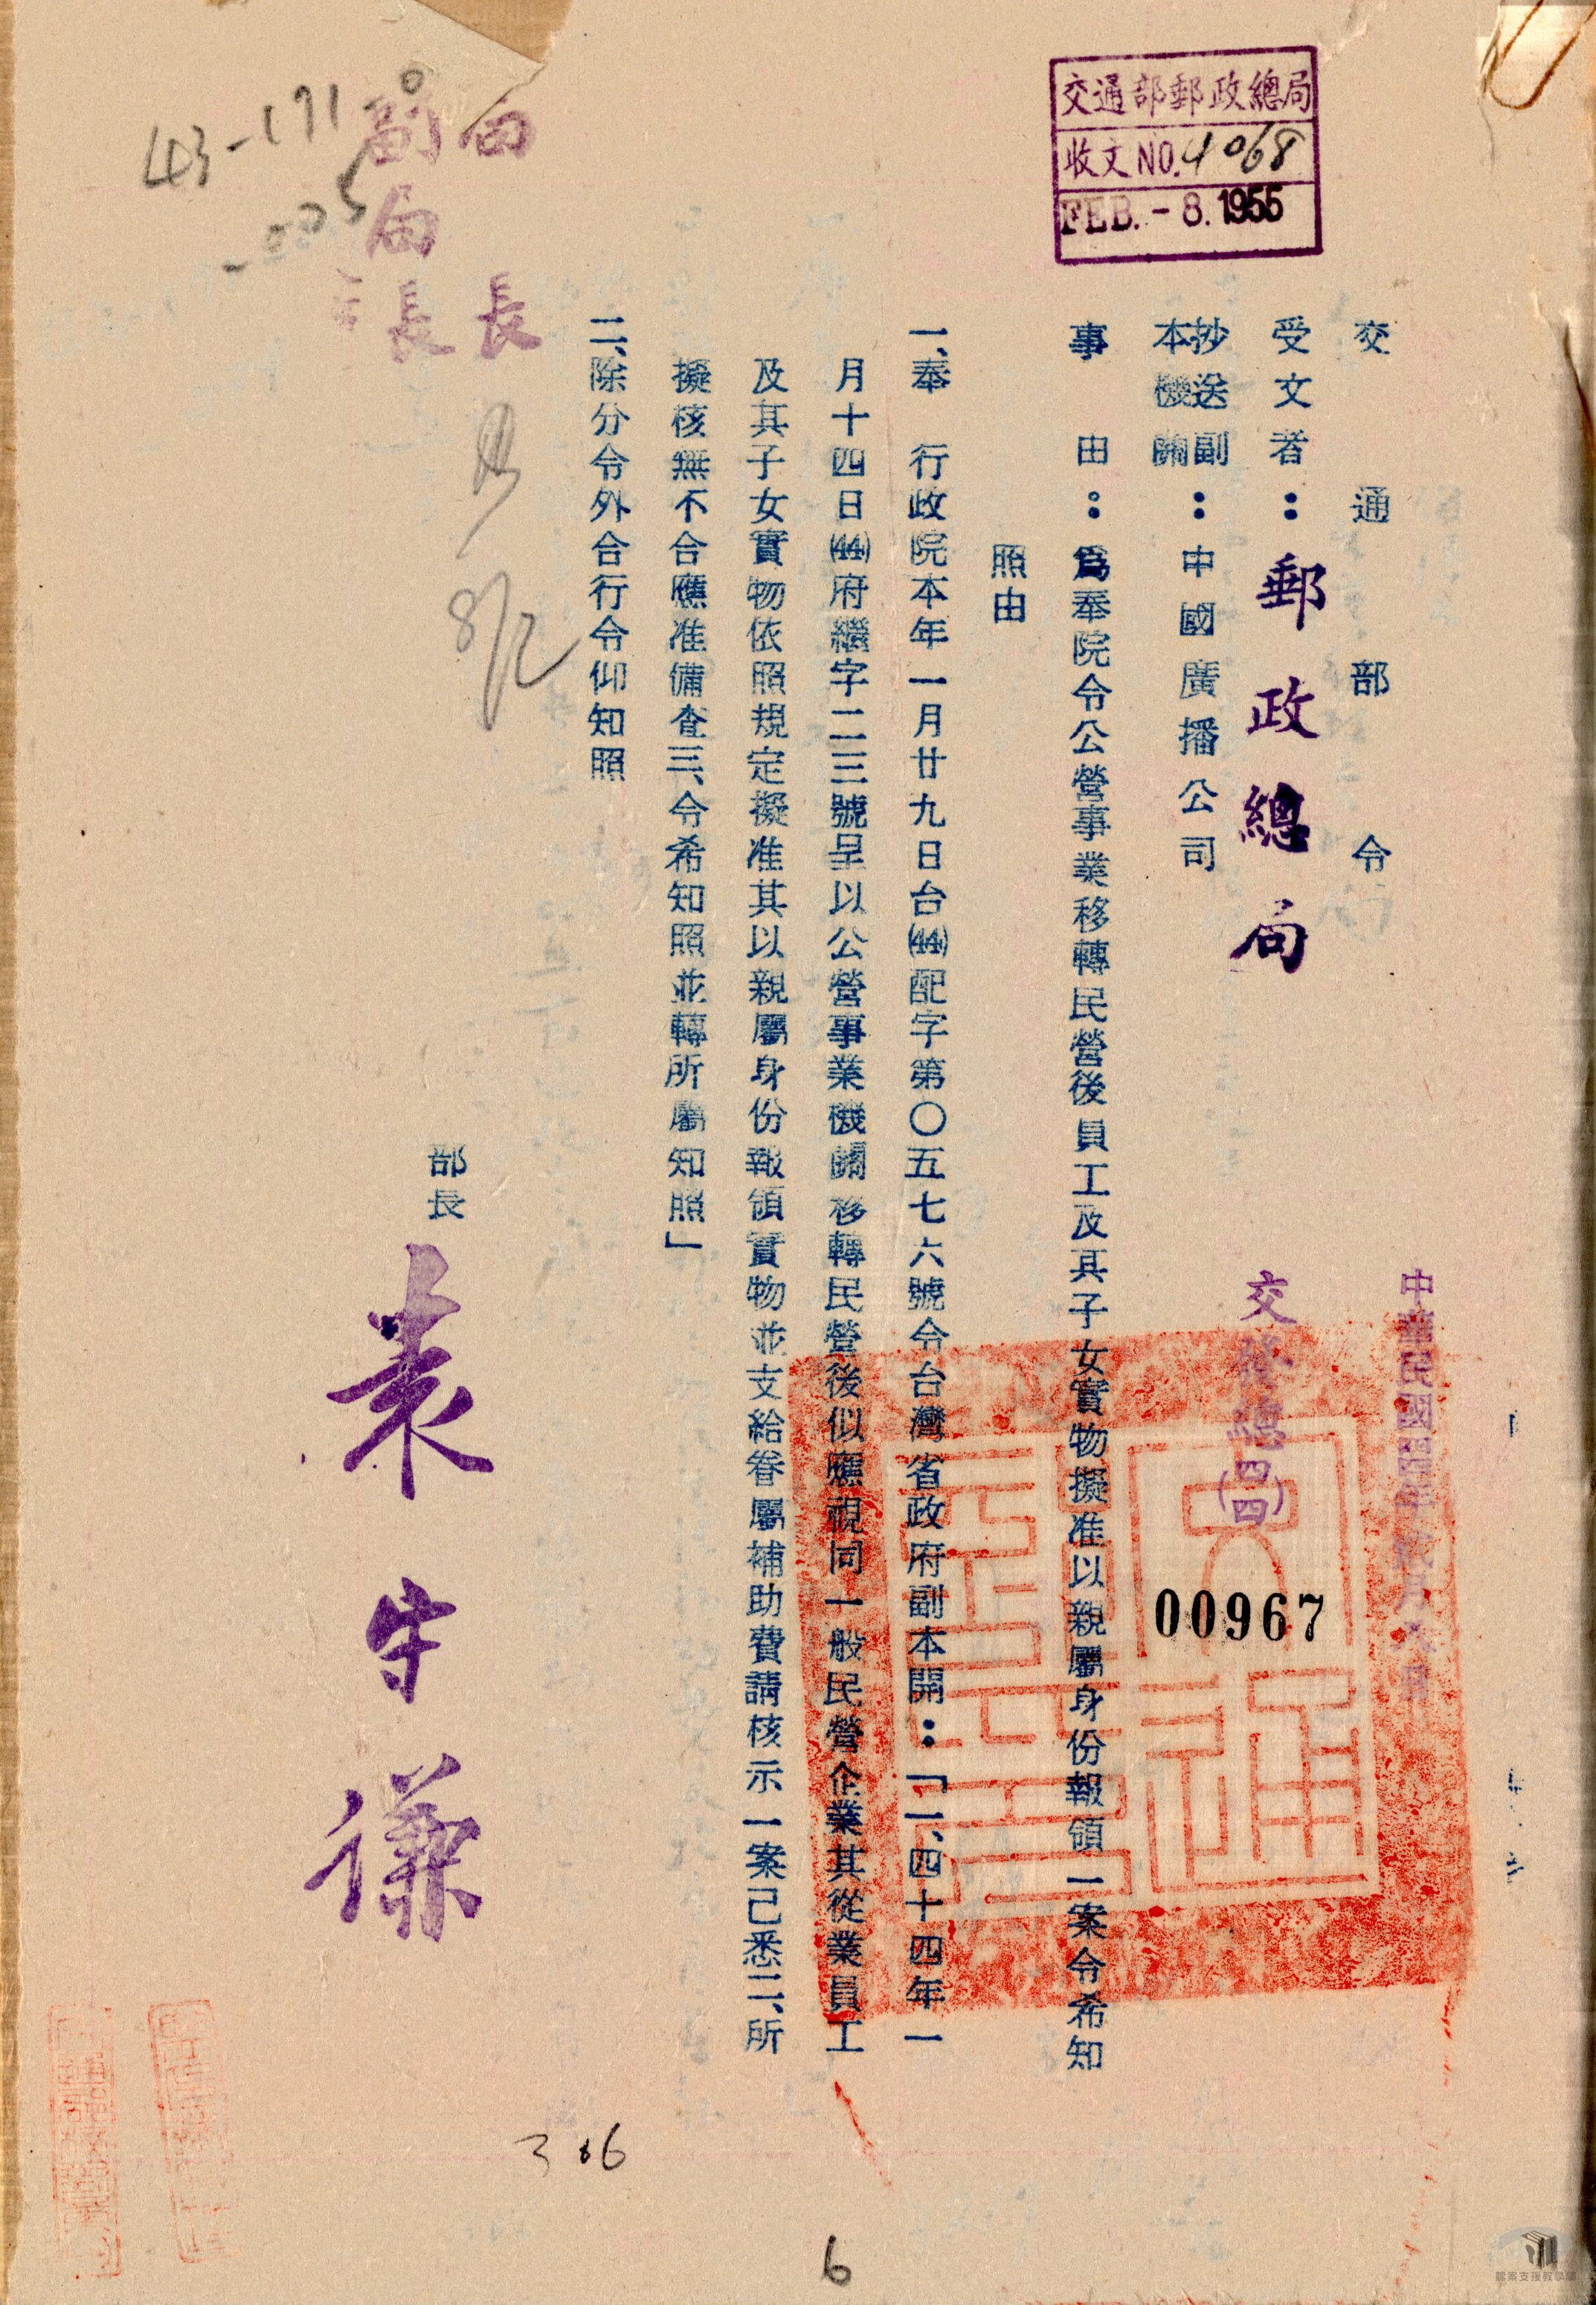 交通部郵政總局
收文NO.4068
FEB.-8.1955
交通部令
受文者：郵政總局
抄送副本機關：中國廣播公司
中華民國四四年貳月八日
交 總(四四)
00967
事由：為奉院令公營事業移轉民營後員工及其子女實物擬准以親屬身份報領一案令希知
照由
一、奉 行政院本年一月廿九日台(44)配字第〇五七六號令台灣省政府副本開：「一、四十四年一
月十四日(44)府繼字二三號呈以公營事業機關移轉民營後似應視同一般民營企業其從業員工
及其子女實物依照規定擬准其以親屬身份報領實物並支給眷屬補助費請核示一案已悉二、所
擬核無不合應准備查三、令希知照並轉所屬知照」
二、除分令外合行令仰知照
部長 袁守謙
局長
副局長
43-171
-005
8/2
306
6
檔案支援教學網